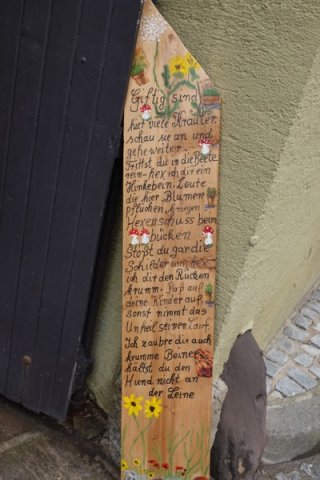 Giftig sind
hier viele Kräuter
schau sie an und
gehe weiter.
Trittst du in die Beete
rein - hex ich dir ein
Hinkebein. Leute
die hier Blumen
pflücken, kriegen
Hexenschuss beim
bücken
Stößt du gar die
Schilder um, hex
ich dir den Rücken
krumm. Pap auf
deine Kinder auf
sonst nimmt das
Unheil seinen Lauf.
Ich zaubre dir auch
krumme Beine
hälst du den
Hund nicht an
der Leine